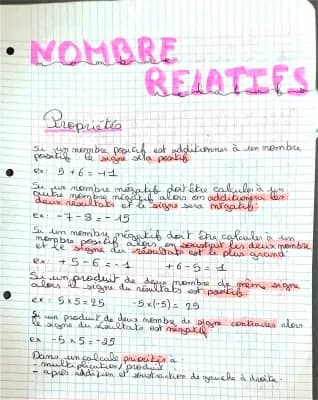 NOMBRE
RELATIFS
Propriétés
Si un nombre positif est additionner à un nombre
positif le signe sera positif.
ex: 5+6=+11
Si un nombre négatif doit être calculer à un
autre nombre négatif alors on additionera les
deux résultats et le signe sera négatif.
ex: -7-8=-15
Si un nombre négatif doit être calculer à un
nombre positif alors on soustrait les deux nombre
et le signe du résultat est le plus grand
ex: +5-6=-1 +6-5=1
Si un produit de deux nombre de même signe
alors le signe du résultat est positif.
ex: 5x5=25 -5x(-5)=25
Si un produit de deux nombre de signe contraires alors
le signe du résultat est négatif
ex -5x5=-25
Dans un calcule priorités à:
-multiplication/produit
-après addition et soustraction de gauche à droite.